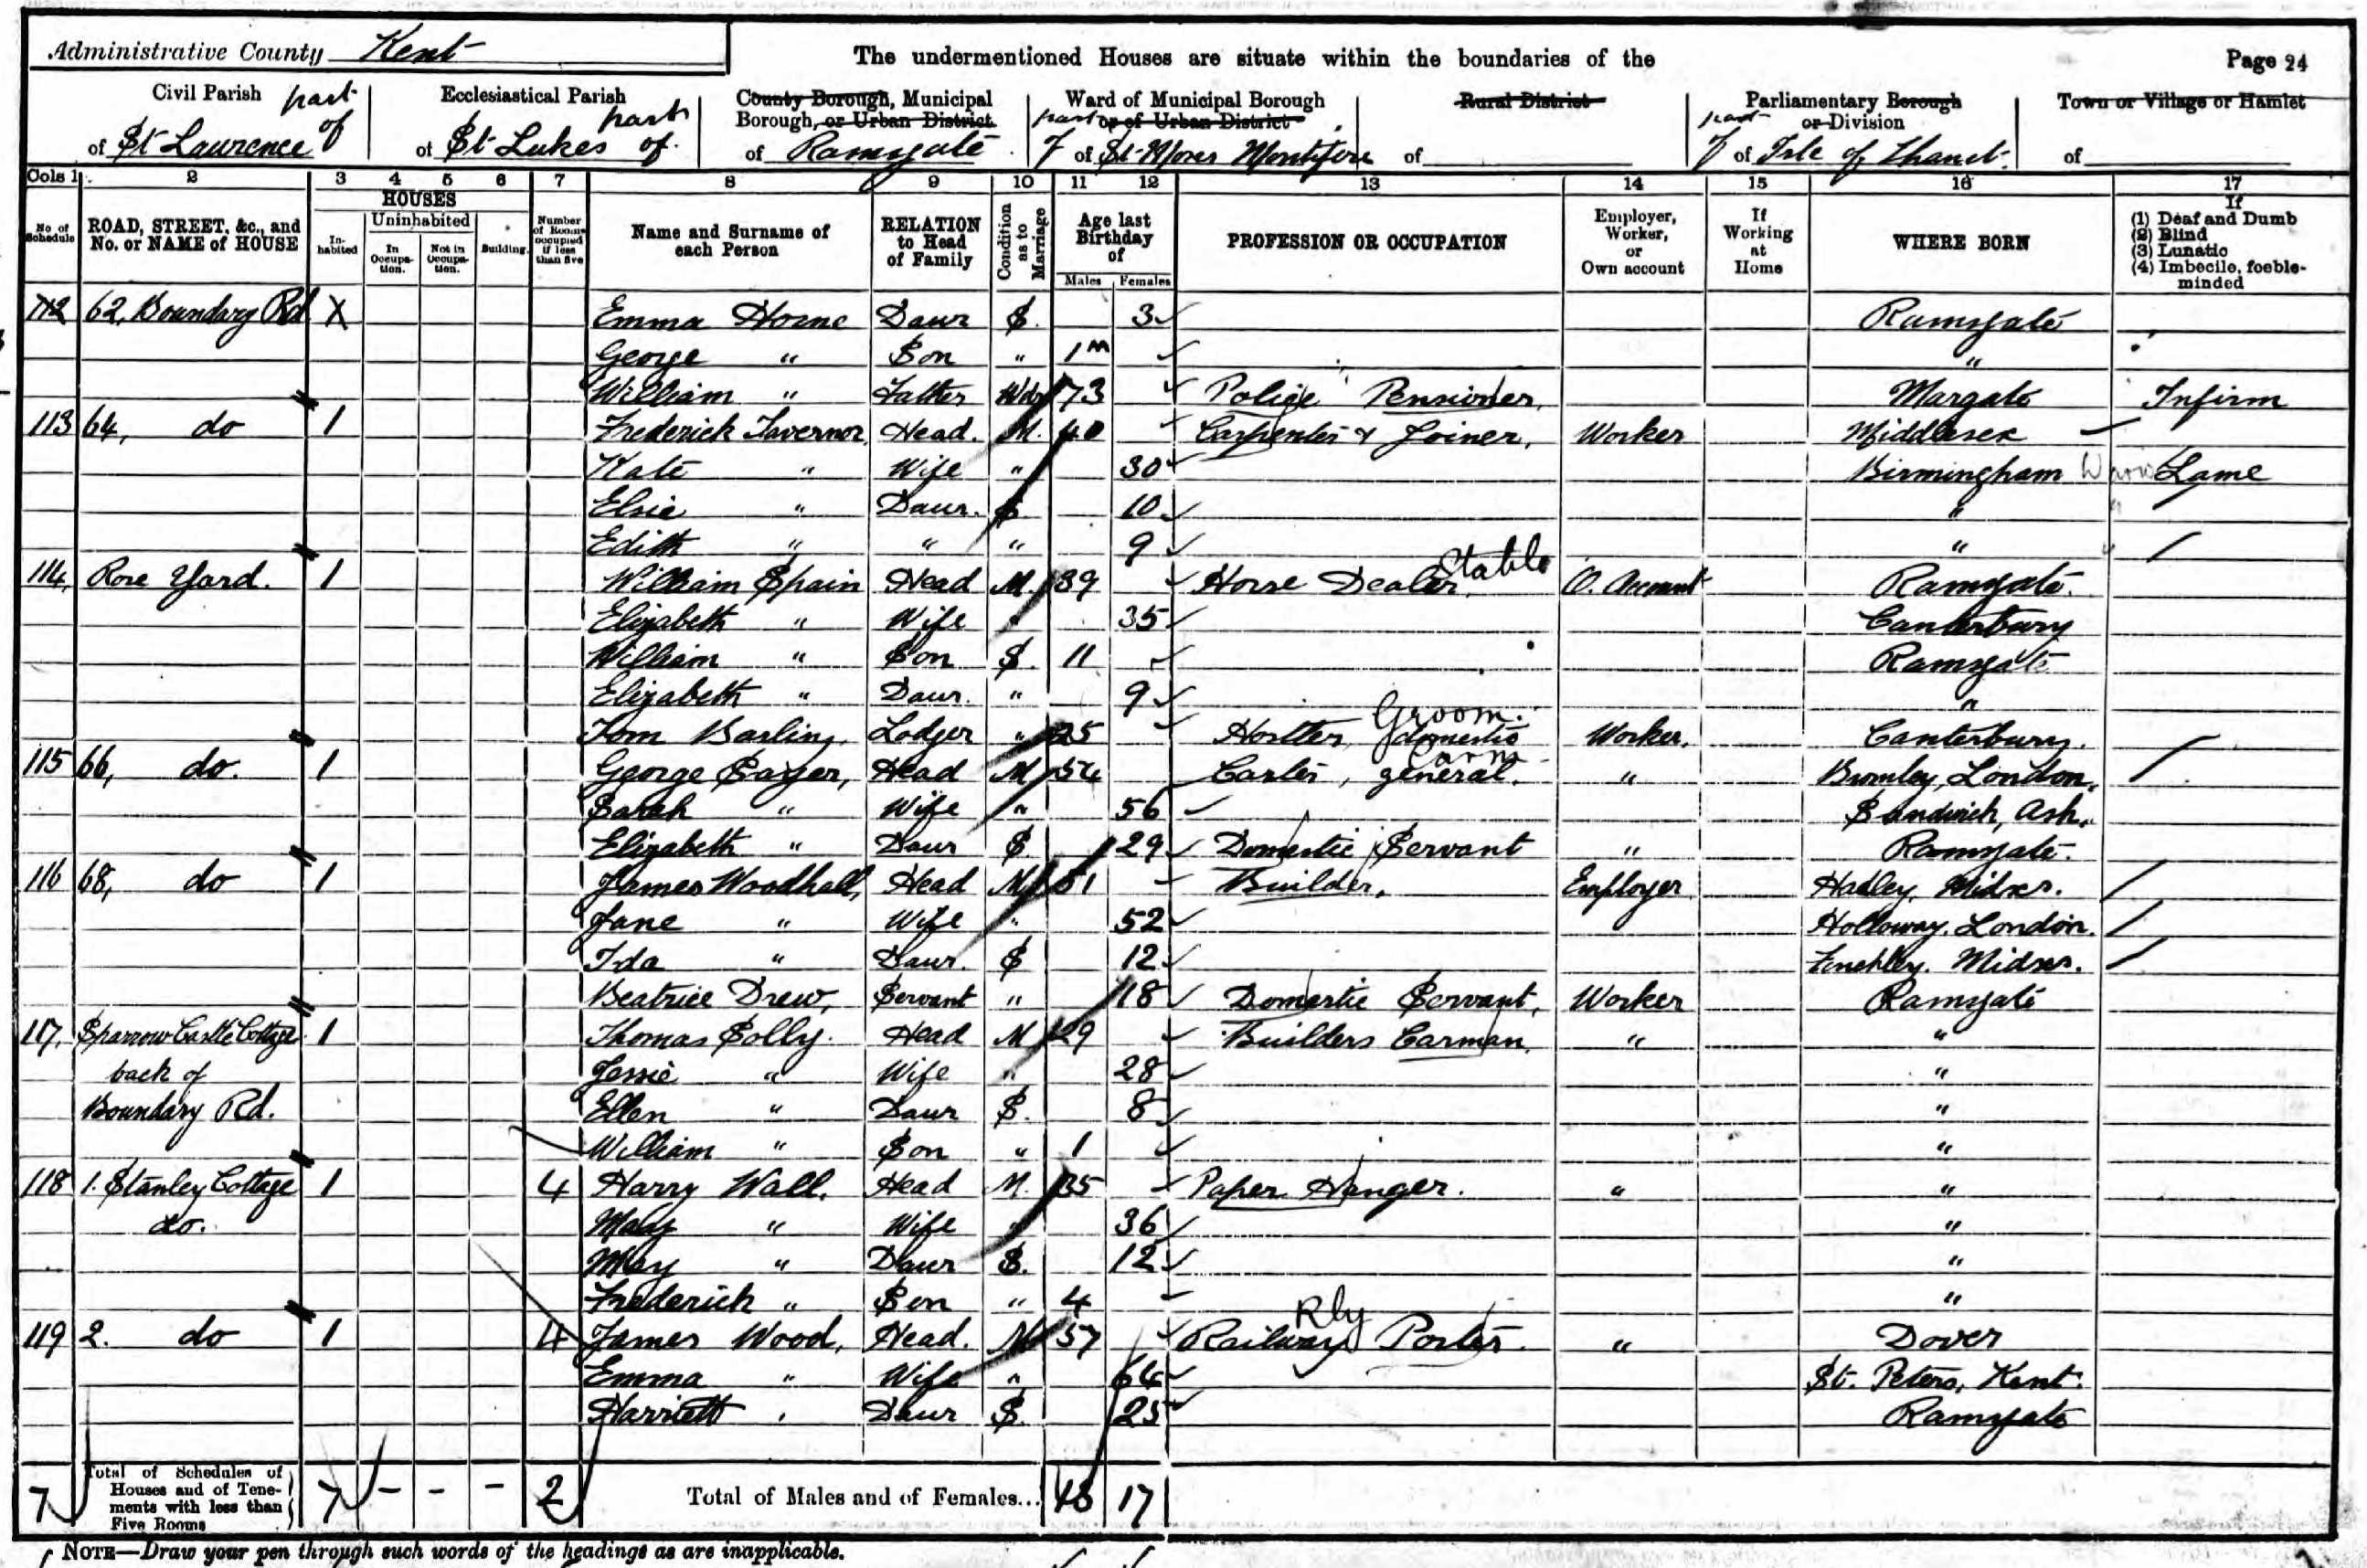 Administrative County Kent
The undermentioned Houses are situate within the boundaries of the
Page 24
Civil Parish part of
of St Laurence
Ecclesiastical Parish part
of St Lukes of
County Borough, Municipal Borough, or Urban District
of Ramsgate
Ward of Municipal Borough or of Urban District
part of of St Moses Montifore
Rural District
of
Parliamentary Borough or Division
part of of Isle of Thanet
Town or Village or Hamlet
of
Cols 1 2 3 4 5 6 7 8 9 10 11 12 13 14 15 16 17
No of Schedule
ROAD, STREET, &c., and No. or NAME of HOUSE
HOUSES
Inhabited
Uninhabited
In Occupation.
Not in Occupation.
Building.
Number of Rooms occupied if less than five
Name and Surname of each Person
RELATION to Head of Family
Condition as to Marriage
Age last Birthday of
Males Females
PROFESSION OR OCCUPATION
Employer, Worker, or Own account
If Working at Home
WHERE BORN
If
(1) Deaf and Dumb
(2) Blind
(3) Lunatic
(4) Imbecile, feeble-minded
112 62, Boundary Rd X Emma Horne Daur S. 3 Ramsgate
George " Son " 1m "
William " Father Wdr 73 Police Pensioner, Margate Infirm
113 64, do 1 Frederick Tavernor, Head. M. 40 Carpenter & Joiner, Worker Middlesex
Kate " Wife " 30 Birmingham Lame
Elsie " Daur. S 10 "
Edith " " " 9 "
114, Rose Yard. 1 William Spain Head M. 39 Horse Dealer Stable O. Account Ramsgate.
Elizabeth " Wife " 35 Canterbury
William " Son S. 11 Ramsgate
Elizabeth " Daur. " 9 "
Tom Barling, Lodger " 25 Hostler, domestic Groom. Worker. Canterbury.
115 66, do. 1 George Sayer, Head M 54 Carter, general. Carm " Bromley, London,
Sarah " Wife " 56 Sandwich, Ash.
Elizabeth " Daur S 29 Domestic Servant " Ramsgate.
116 68, do 1 James Woodhall, Head M 51 Builder, Employer Hadley, Midsex.
Jane " Wife " 52 Holloway, London.
Ida " Daur. S 12 Finchley. Midsex.
Beatrice Drew, Servant " 18 Domestic Servant, Worker Ramsgate
117, Sparrow Castle Cottage 1 Thomas Solly. Head M 29 Builders Carman, " "
back of Jessie " Wife " 28 "
Boundary Rd. Ellen " Daur S. 8 "
William " Son " 1 "
118 1. Stanley Cottage 1 4 Harry Wall. Head M. 35 Paper Hanger. " "
do. Mary " Wife " 36 "
May " Daur S. 12 "
Frederick " Son " 4 "
119 2. do 1 4 James Wood, Head. M 57 Railway Porter. Rly " Dover
Emma " Wife " 64 St. Peters, Kent.
Harriett " Daur S. 25 Ramsgate
7 Total of Schedules of Houses and of Tenements with less than Five Rooms 7 - - - 2 Total of Males and of Females... 13 17
NOTE—Draw your pen through such words of the headings as are inapplicable.